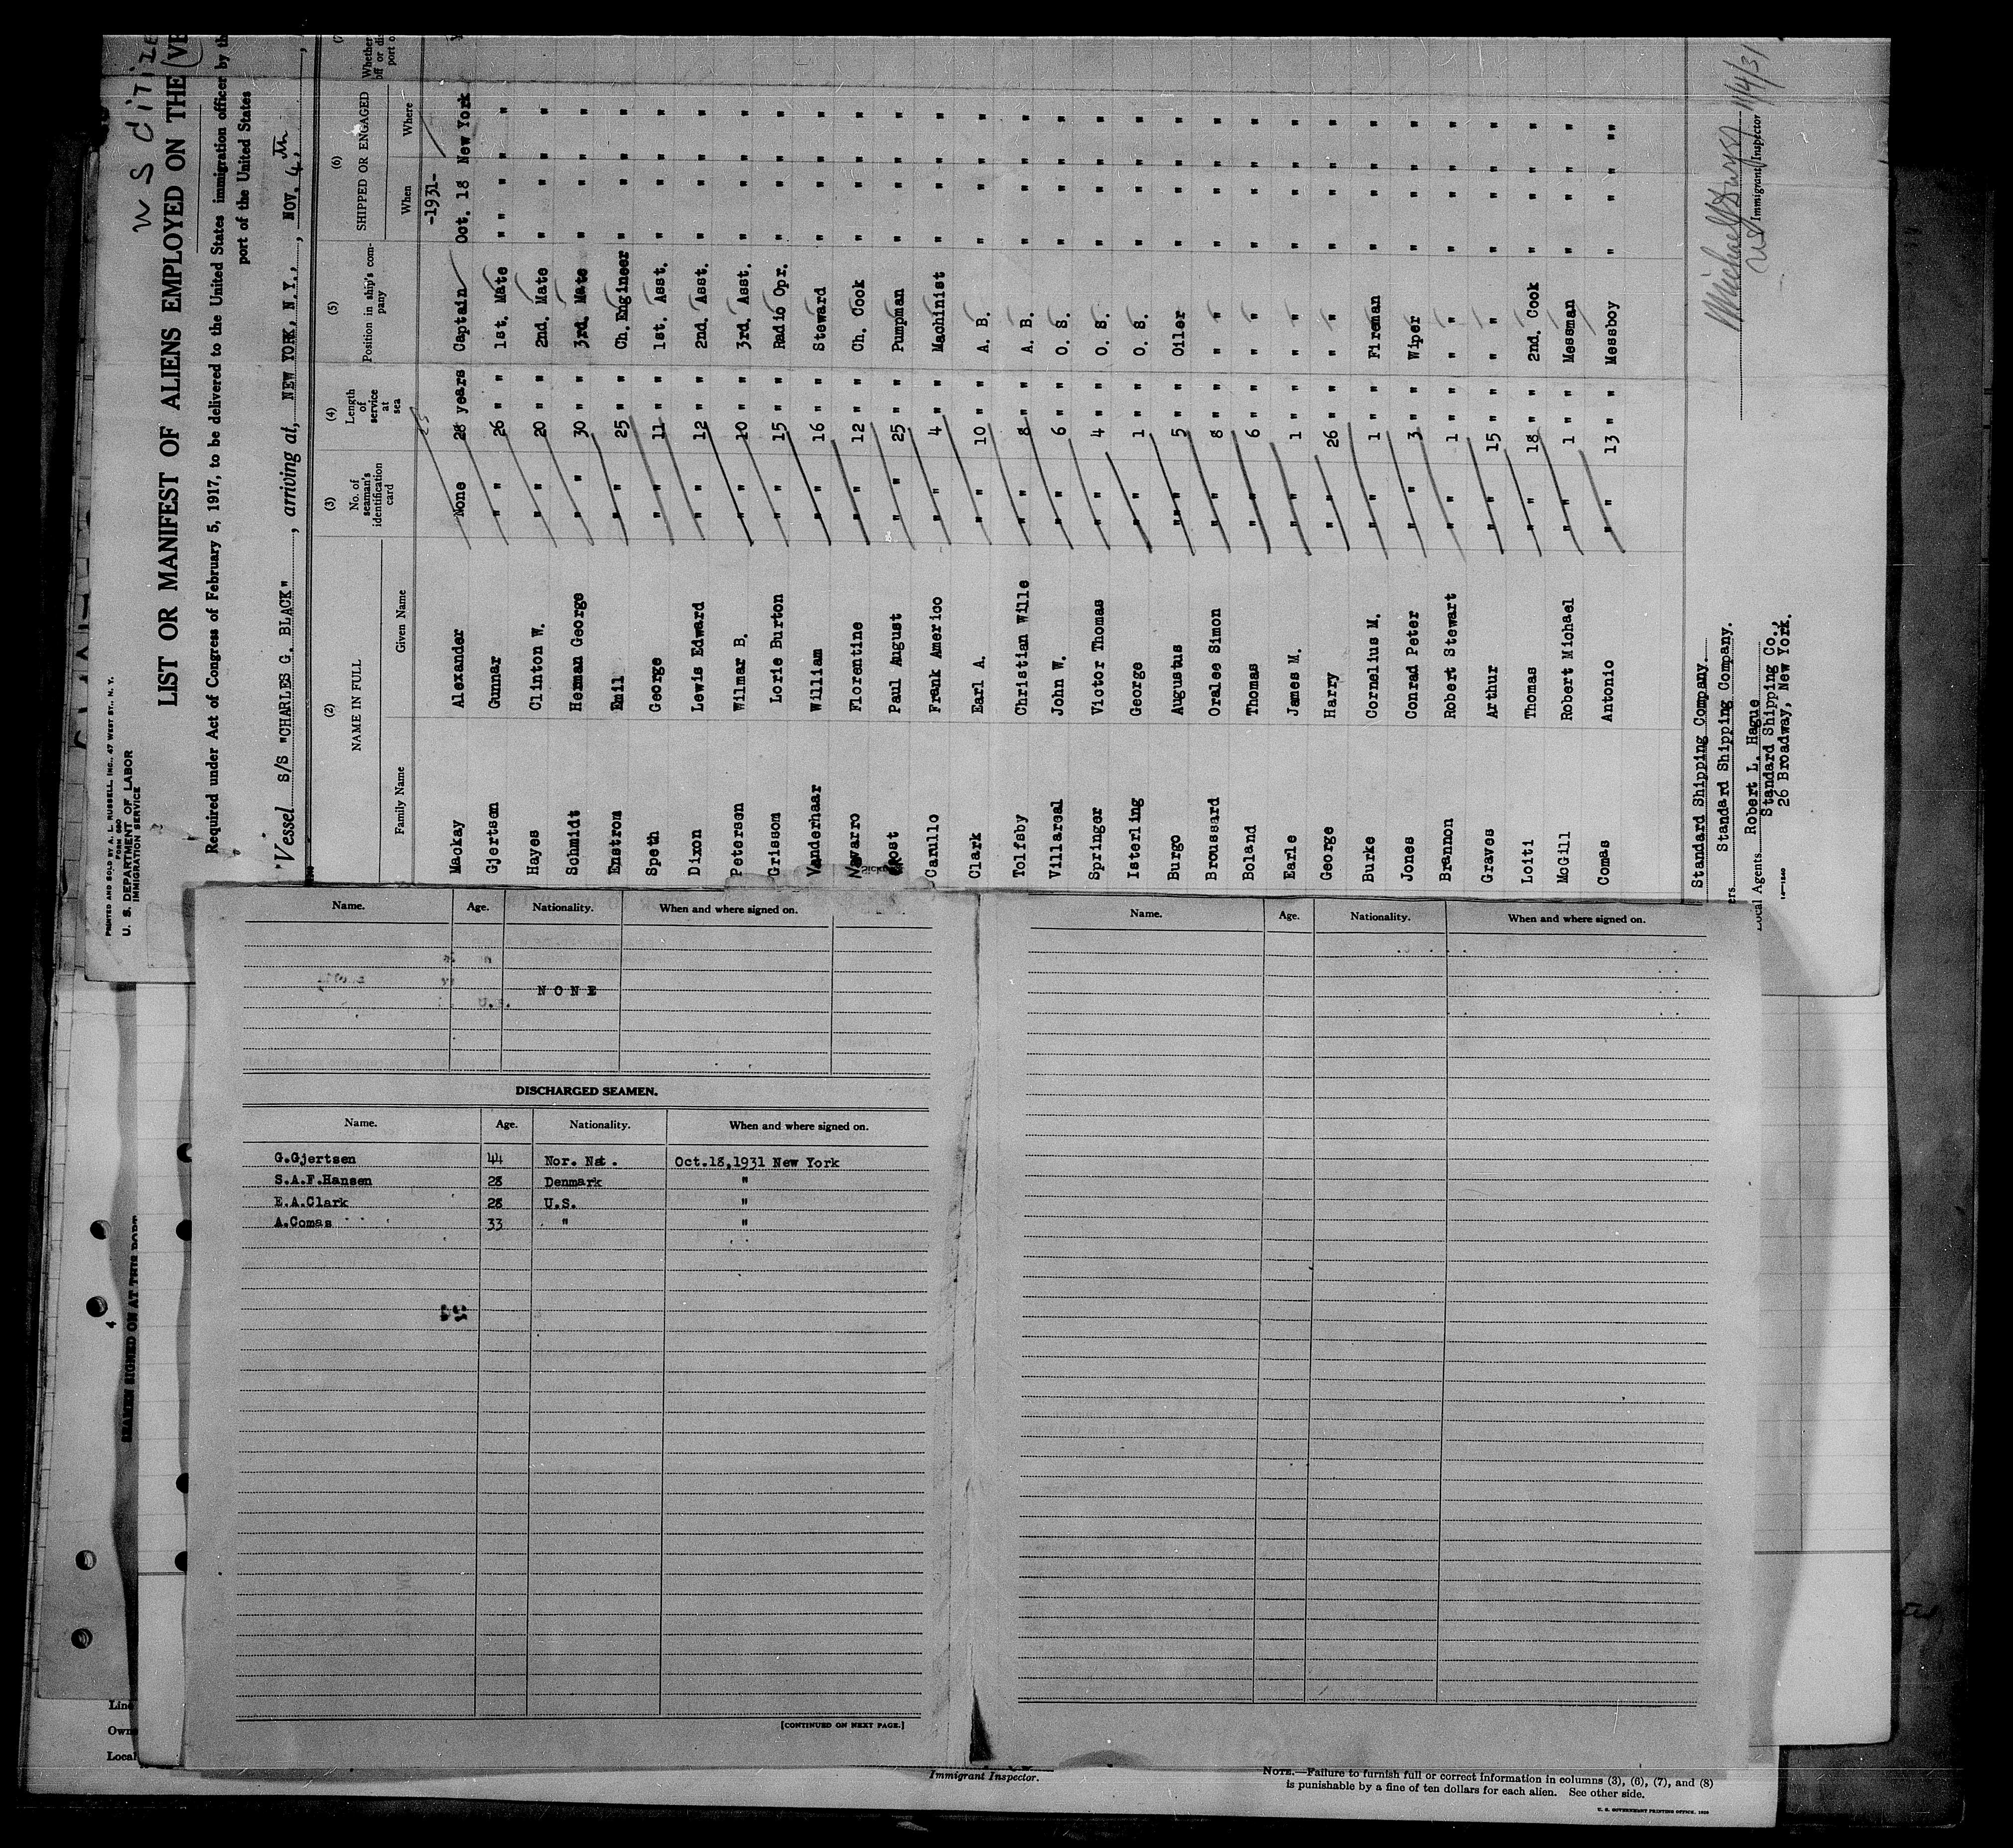 U S Citize
PRINTED AND SOLD BY A. L. RUSSELL, INC., 47 WEST ST., N. Y.
FORM 680
U. S. DEPARTMENT OF LABOR
IMMIGRATION SERVICE
LIST OR MANIFEST OF ALIENS EMPLOYED ON THE
Required under Act of Congress of February 5, 1917, to be delivered to the United States immigration officer by th
port of the United States
Vessel S/S "CHARLES G. BLACK", arriving at, NEW YORK, N.Y., NOV. 4,
(2) (3) (4) (5) (6)
NAME IN FULL No. of seaman's identification card Length of service at sea Position in ship's company SHIPPED OR ENGAGED Whether
Family Name Given Name When Where
-1931-
Mackay Alexander None 28 years Captain Oct. 18 New York
Gjertsen Gunnar " " 26 " " 1st. Mate " " " " "
Hayes Clinton W. " " 20 " " 2nd. Mate " " " "
Schmidt Herman George " " 30 " " 3rd. Mate " " " "
Enstrom Emil " " 25 " " Ch. Engineer " " " "
Speth George " " 11 " " 1st. Asst. " " " "
Dixon Lewis Edward " " 12 " " 2nd. Asst. " " " "
Petersen Wilmar B. " " 10 " " 3rd. Asst. " " " "
Grissom Lorie Burton " " 15 " " Radio Opr. " " " "
Vanderhaar William " " 16 " " Steward " " " "
Navarro Florentine " " 12 " " Ch. Cook " " " "
Paul August " " 25 " " Pumpman " " " "
Carullo Frank Americo " " 4 " " Machinist " " " "
Clark Earl A. " " 10 " " A. B. " " " "
Tolfsby Christian Wille " " 8 " " A. B. " " " "
Villareal John W. " " 6 " " O. S. " " " "
Springer Victor Thomas " " 4 " " O. S. " " " "
Isterling George " " 1 " " O. S. " " " "
Burgo Augustus " " 5 " " Oiler " " " "
Broussard Oralee Simon " " 8 " " " " " " "
Boland Thomas " " 6 " " " " " " "
Earle James M. " " 1 " " " " " " "
George Harry " " 26 " " " " " " "
Burke Cornelius M. " " 1 " " Fireman " " " "
Jones Conrad Peter " " 3 " " Wiper " " " "
Brannon Robert Stewart " " 1 " " " " " " "
Graves Arthur " " 15 " " " " " " "
Loiti Thomas " " 18 " " 2nd. Cook " " " "
McGill Robert Michael " " 1 " " Messman " " " "
Comas Antonio " " 13 " " Messboy " " " "
Standard Shipping Company.
ers Standard Shipping Company.
Local Agents Robert L. Hague
Standard Shipping Co.,
26 Broadway, New York.
11/4/31
Immigrant Inspector
Name. Age. Nationality. When and where signed on.
NONE
DISCHARGED SEAMEN.
Name. Age. Nationality. When and where signed on.
G.Gjertsen 44 Nor. Nat. Oct.18,1931 New York
S.A.F.Hansen 28 Denmark "
E.A.Clark 28 U.S. "
A.Comas 33 " "
[CONTINUED ON NEXT PAGE.]
Name. Age. Nationality. When and where signed on.
SEAMEN SIGNED ON AT THIS PORT
4
Line
Owne
Local
Immigrant Inspector.
NOTE.—Failure to furnish full or correct information in columns (3), (6), (7), and (8)
is punishable by a fine of ten dollars for each alien. See other side.
U. S. GOVERNMENT PRINTING OFFICE